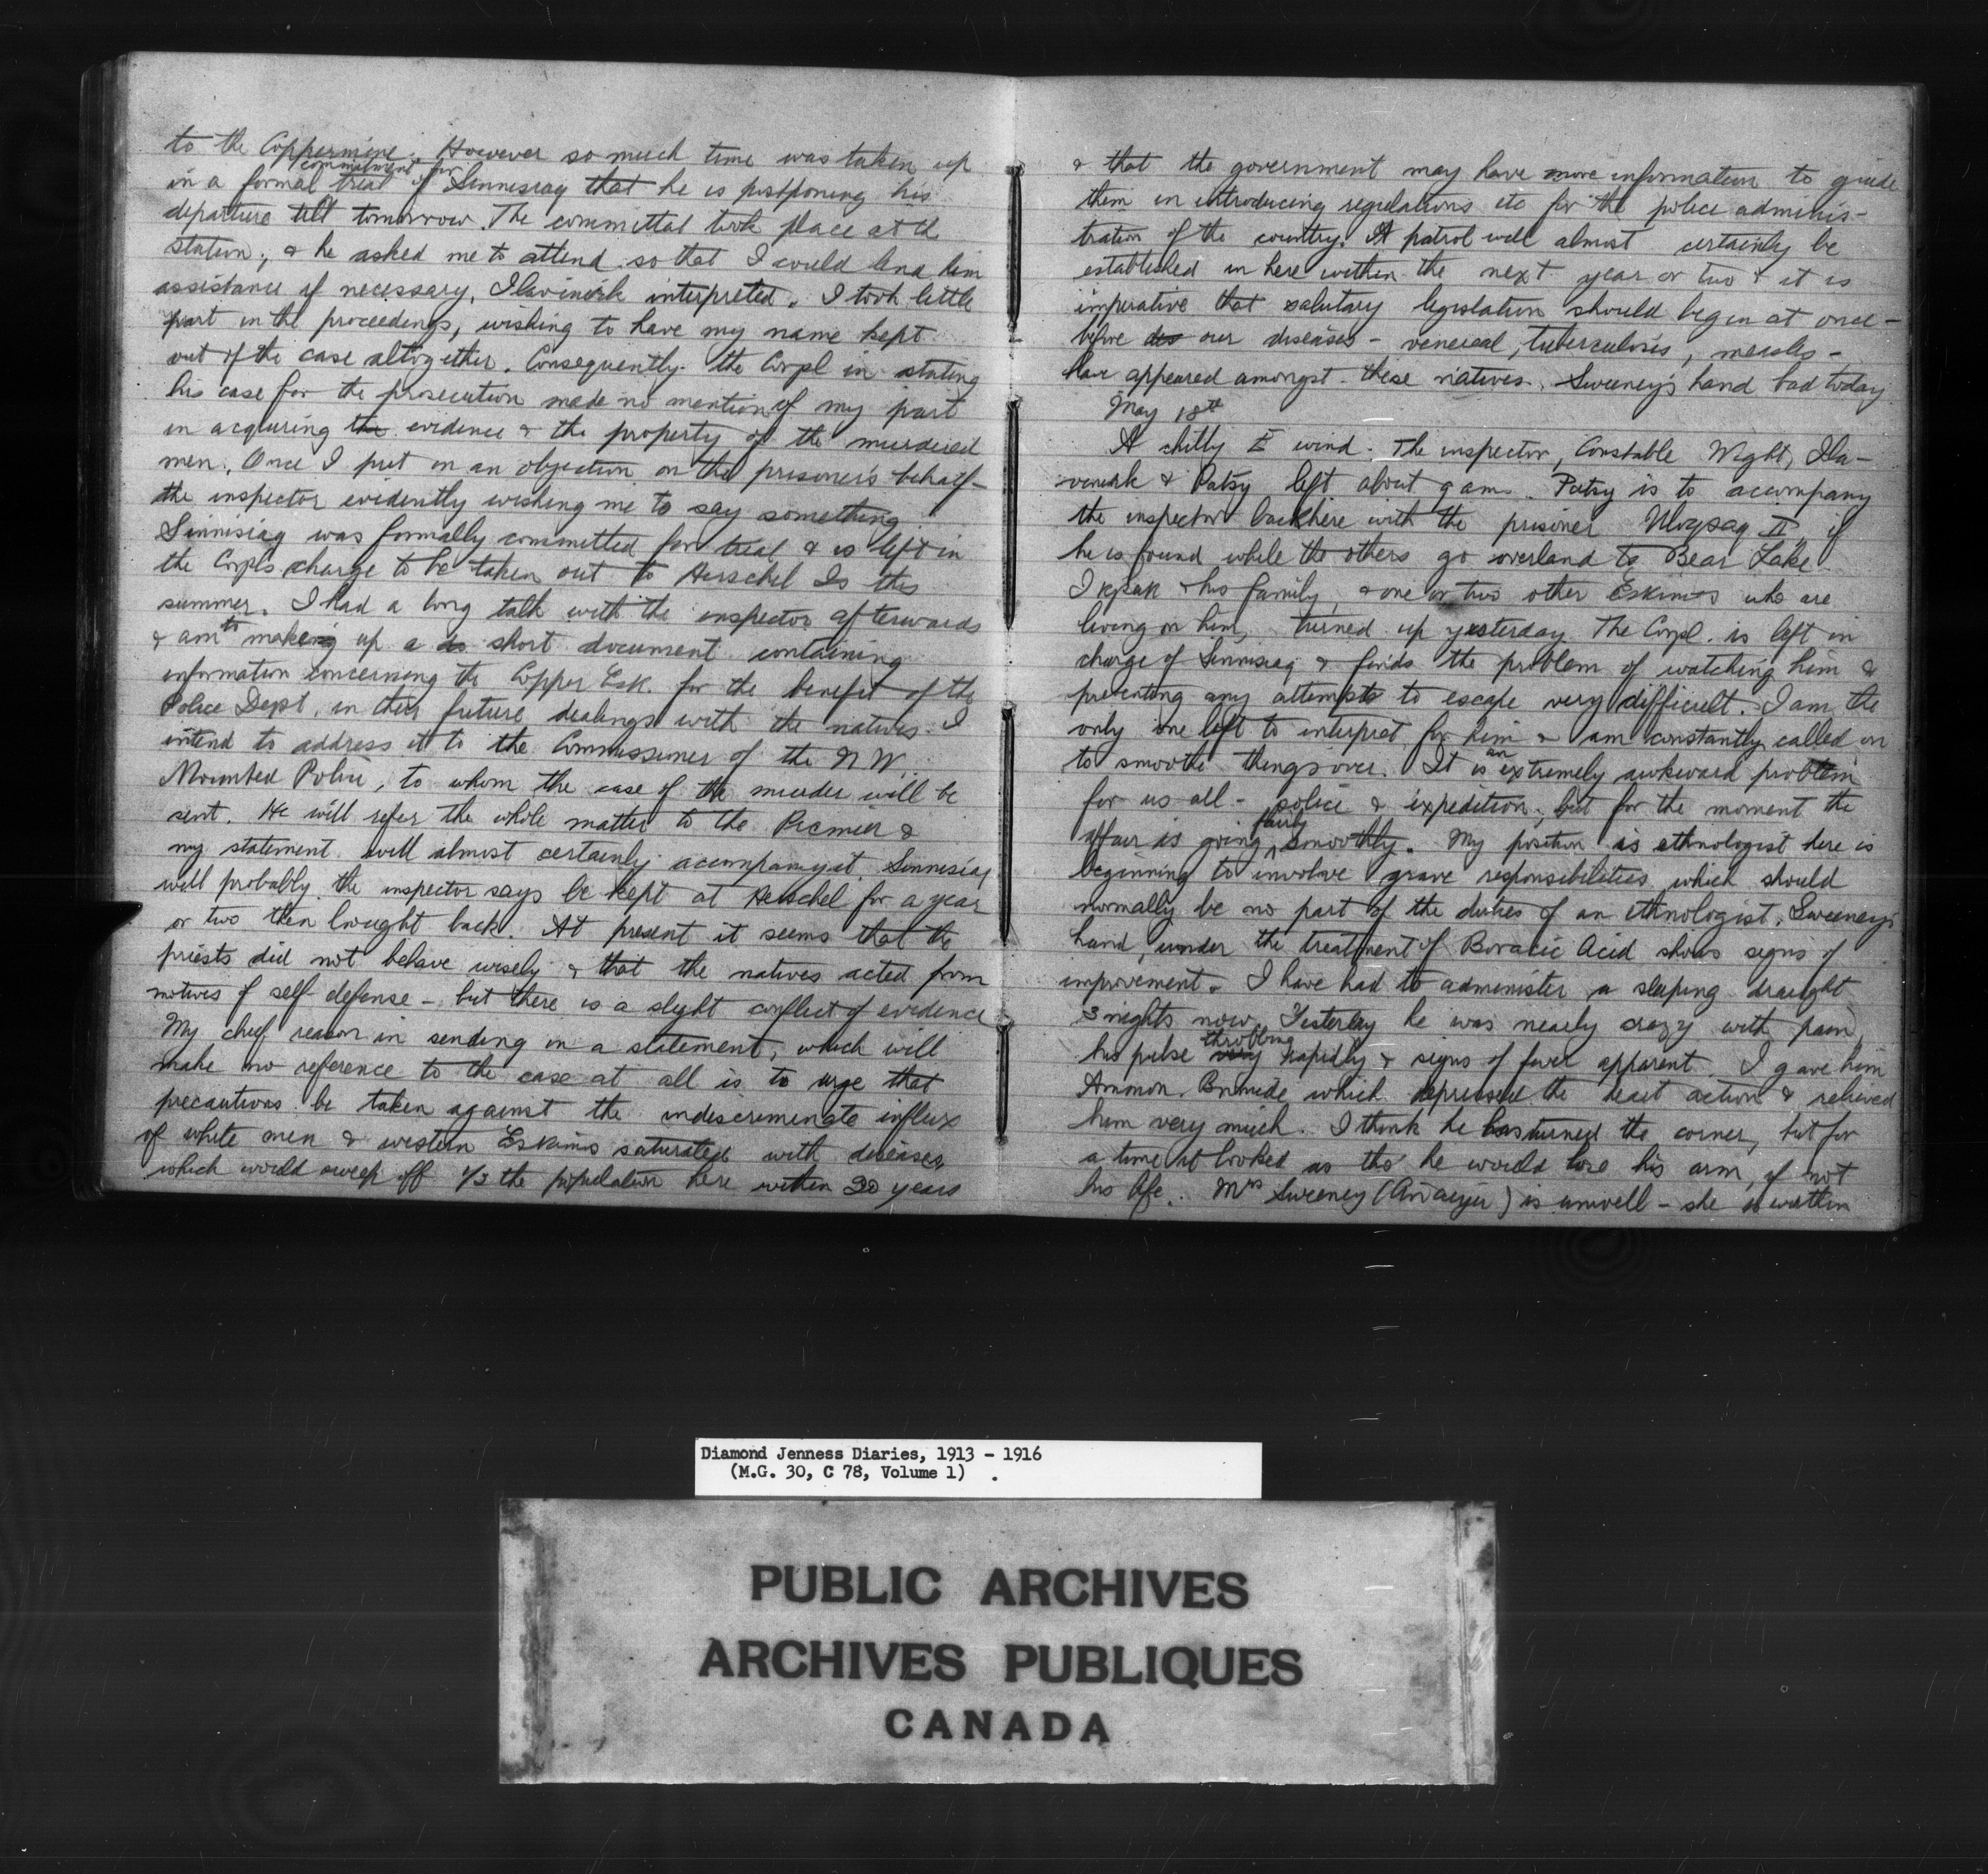 to the Coppermine. However so much time was taken up
in a formal trial commitment for of Sinnisiag that he is postponing his
departure till tomorrow. The committal took place at the
station, & he asked me to attend so that I could lend him
assistance if necessary, Ilavinirk interpreted. I took little
part in the proceedings, wishing to have my name kept
out of the case altogether. Consequently the Corpl in stating
his case for the prosecution made no mention of my part
in acquiring the evidence & the property of the murdered
men. Once I put in an objection on the prisoner's behalf -
the inspector evidently wishing me to say something.
Sinnisiag was formally committed for trial & is left in
the Corpls charge to be taken out to Herschel Is this
summer. I had a long talk with the inspector afterwards
& am to making up a do short document containing
information concerning the Copper Esk. for the benefit of the
Police Dept. in their future dealings with the natives. I
intend to address it to the Commissioner of the N W.
Mounted Police, to whom the case of the murder will be
sent. He will refer the whole matter to the Premier &
my statement will almost certainly accompany it. Sinnisiag
will probably the inspector says be kept at Herschel for a year
or two then brought back. At present it seems that the
priests did not behave wisely & that the natives acted from
motives of self-defense - but there is a slight conflict of evidence
My chief reason in sending in a statement, which will
make no reference to the case at all is to urge that
precautions be taken against the indiscriminate influx
of white men & western Eskimos saturated with diseases,
which would sweep off 1/2 the population here within 20 years
& that the government may have more information to guide
them in introducing regulations etc for the police adminis-
tration of the country. A patrol will almost certainly be
established in here within the next year or two & it is
imperative that salutary legislation should begin at once -
before des our diseases - venereal, tuberculosis, measles -
have appeared amongst these natives. Sweeney's hand bad today
May 18th
A chilly E wind. The inspector, Constable Wight, Ila-
vinirk & Patsy left about 9 am. Patsy is to accompany
the inspector back here with the prisoner Uloqsaq II, if
he is found while the others go overland to Bear Lake.
Ikpak & his family, & one or two other Eskimos who are
living on him, turned up yesterday. The Corpl. is left in
charge of Sinnisiag & finds the problem of watching him &
preventing any attempts to escape very difficult. I am the
only one left to interpret for him & am constantly called on
to smooth things over. It is an extremely awkward problem
for us all - police & expedition, but for the moment the
affair is going fairly smoothly. My position as ethnologist here is
beginning to involve grave responsibilities which should
normally be no part of the duties of an ethnologist. Sweeney's
hand, under the treatment of Boracic Acid shows signs of
improvement. I have had to administer a sleeping draught
3 nights now. Yesterday he was nearly crazy with pain,
his pulse very throbbing rapidly & signs of fever apparent. I gave him
Ammon. Bromide which depressed the heart action & relieved
him very much. I think he has turned the corner, but for
a time it looked as tho' he would lose his arm, if not
his life. Mrs Sweeney is unwell - she is within
Diamond Jenness Diaries, 1913 - 1916
(M.G. 30, C 78, Volume 1)
PUBLIC ARCHIVES
ARCHIVES PUBLIQUES
CANADA